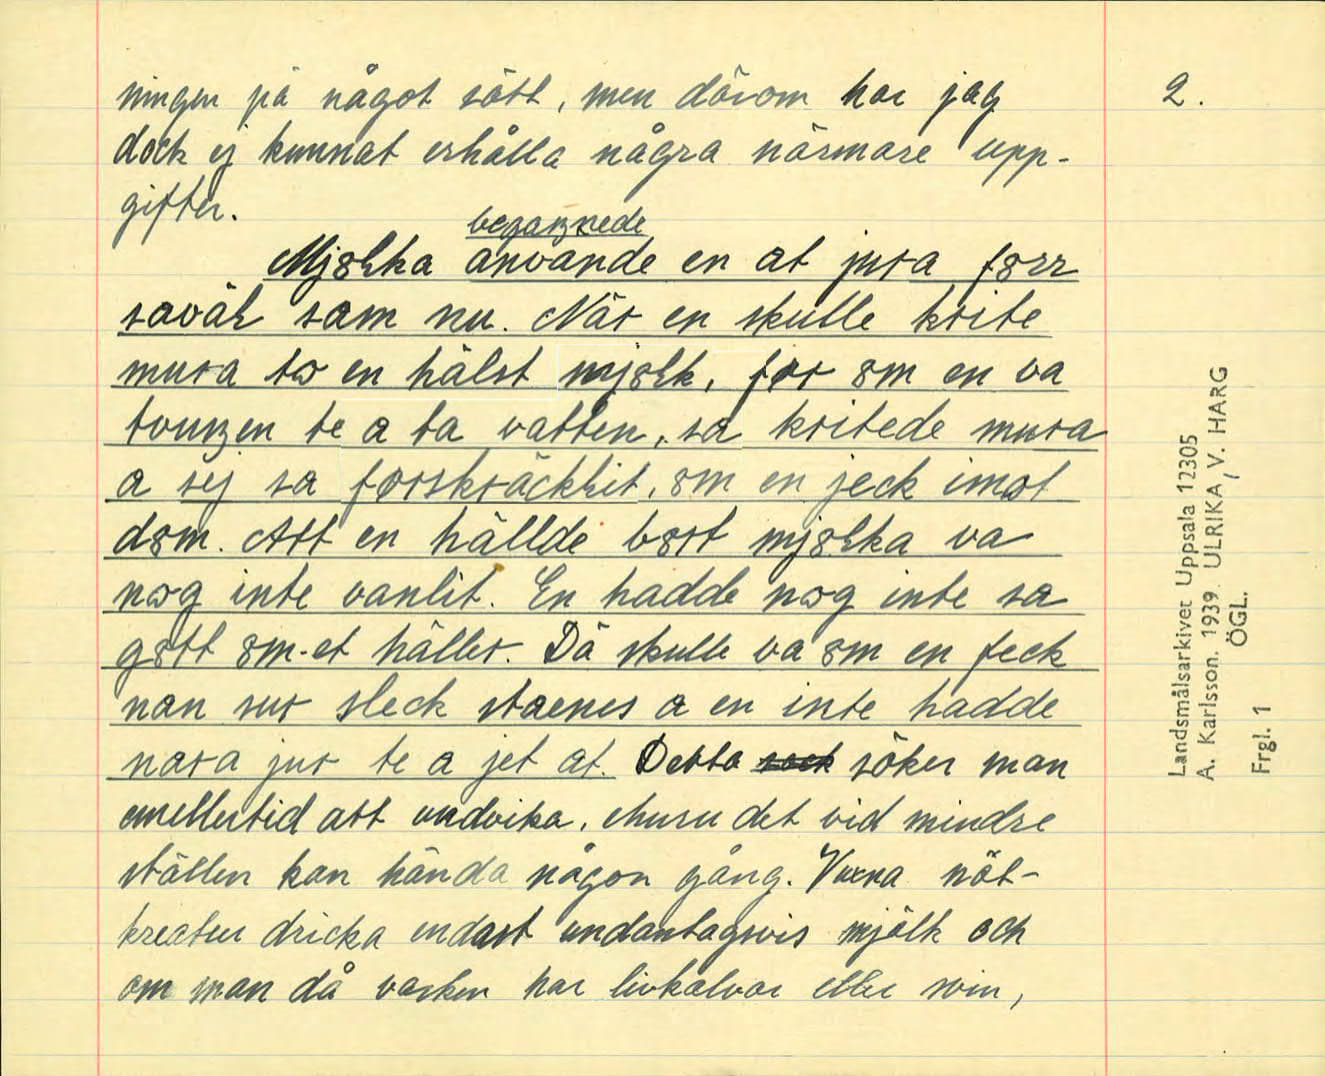 ningen på något sätt, men därom har jag
2.
dock ej kunnat erhålla några närmare upp-
gifter.
begaŋnede
Mjölka anvande en at jura förr
saväl sam nu. När en skulle krite
mura to en hälst mjölk, för öm en va
tvuŋen te a ta vatten, sa kritede mura
a sej sa förskräcklit, öm en jeck imot
döm. Att en hällde bört mjölka va
nog inte vanlit. En hadde nog inte sa
gött öm-et häller. Dä skulle va öm en feck
nan sur sleck staenes a en inte hadde
nara jur te a jet at. Detta söker man
emellertid att undvika, ehuru det vid mindre
ställen kan hända någon gång. Vuxna nöt-
kreatur dricka endast undantagsvis mjölk och
om man då varken har livkalvar eller svin,
Landsmålsarkivet Uppsala 12305
A. Karlsson. 1939. ULRIKA, V. HARG
ÖGL.
Frgl. 1